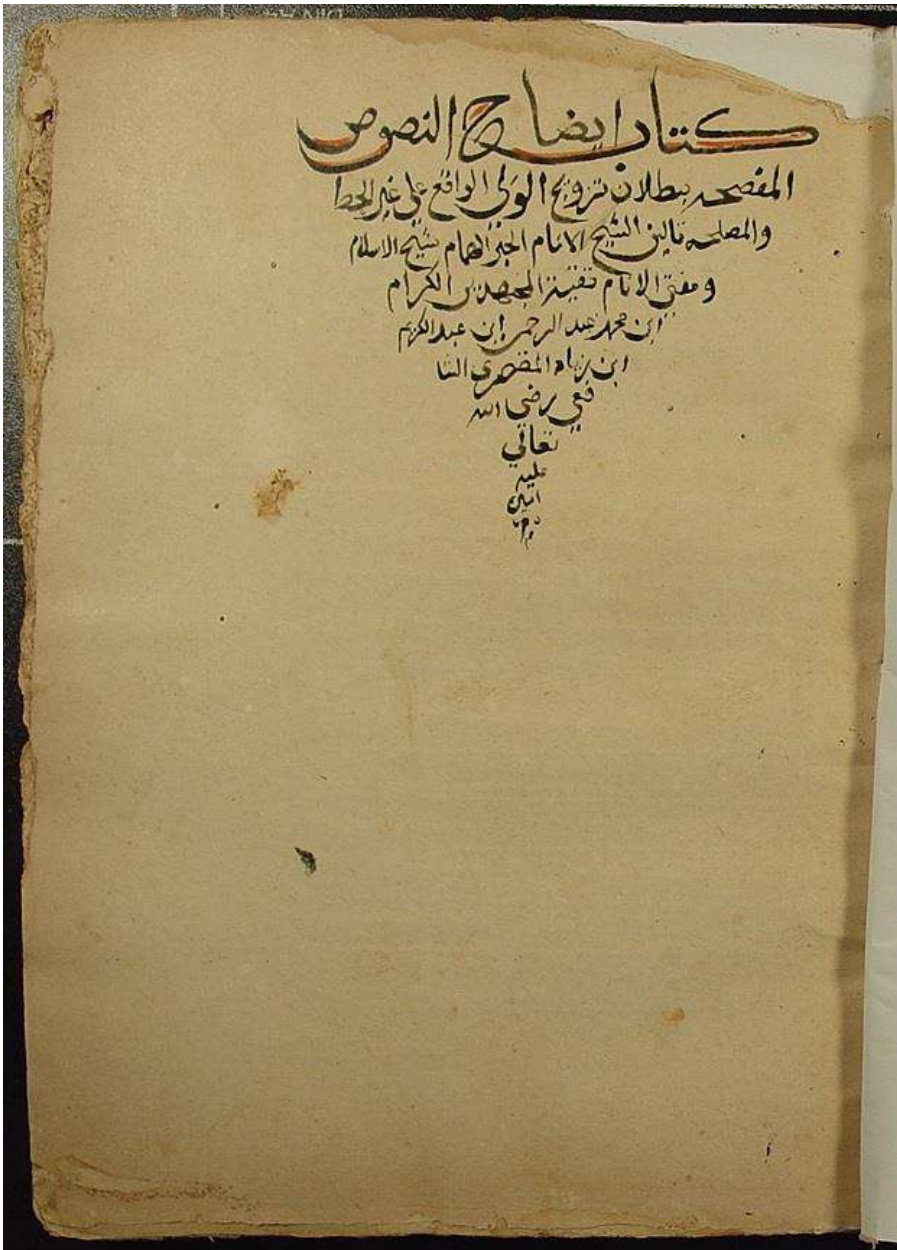 كتاب ايضاح النصوص
المفصحه ببطلان تزويج الولي الواقع على غير الحظ
والمصلحه تاليف الشيخ الامام الحبر الهمام شيخ الاسلام
ومفتي الانام بقية المجتهدين الكرام
ابن محمد عبد الرحمن ابن عبد الكريم
ابن زياد المقصري الشا
فعي رضي الله
تعالى
عليه
امين